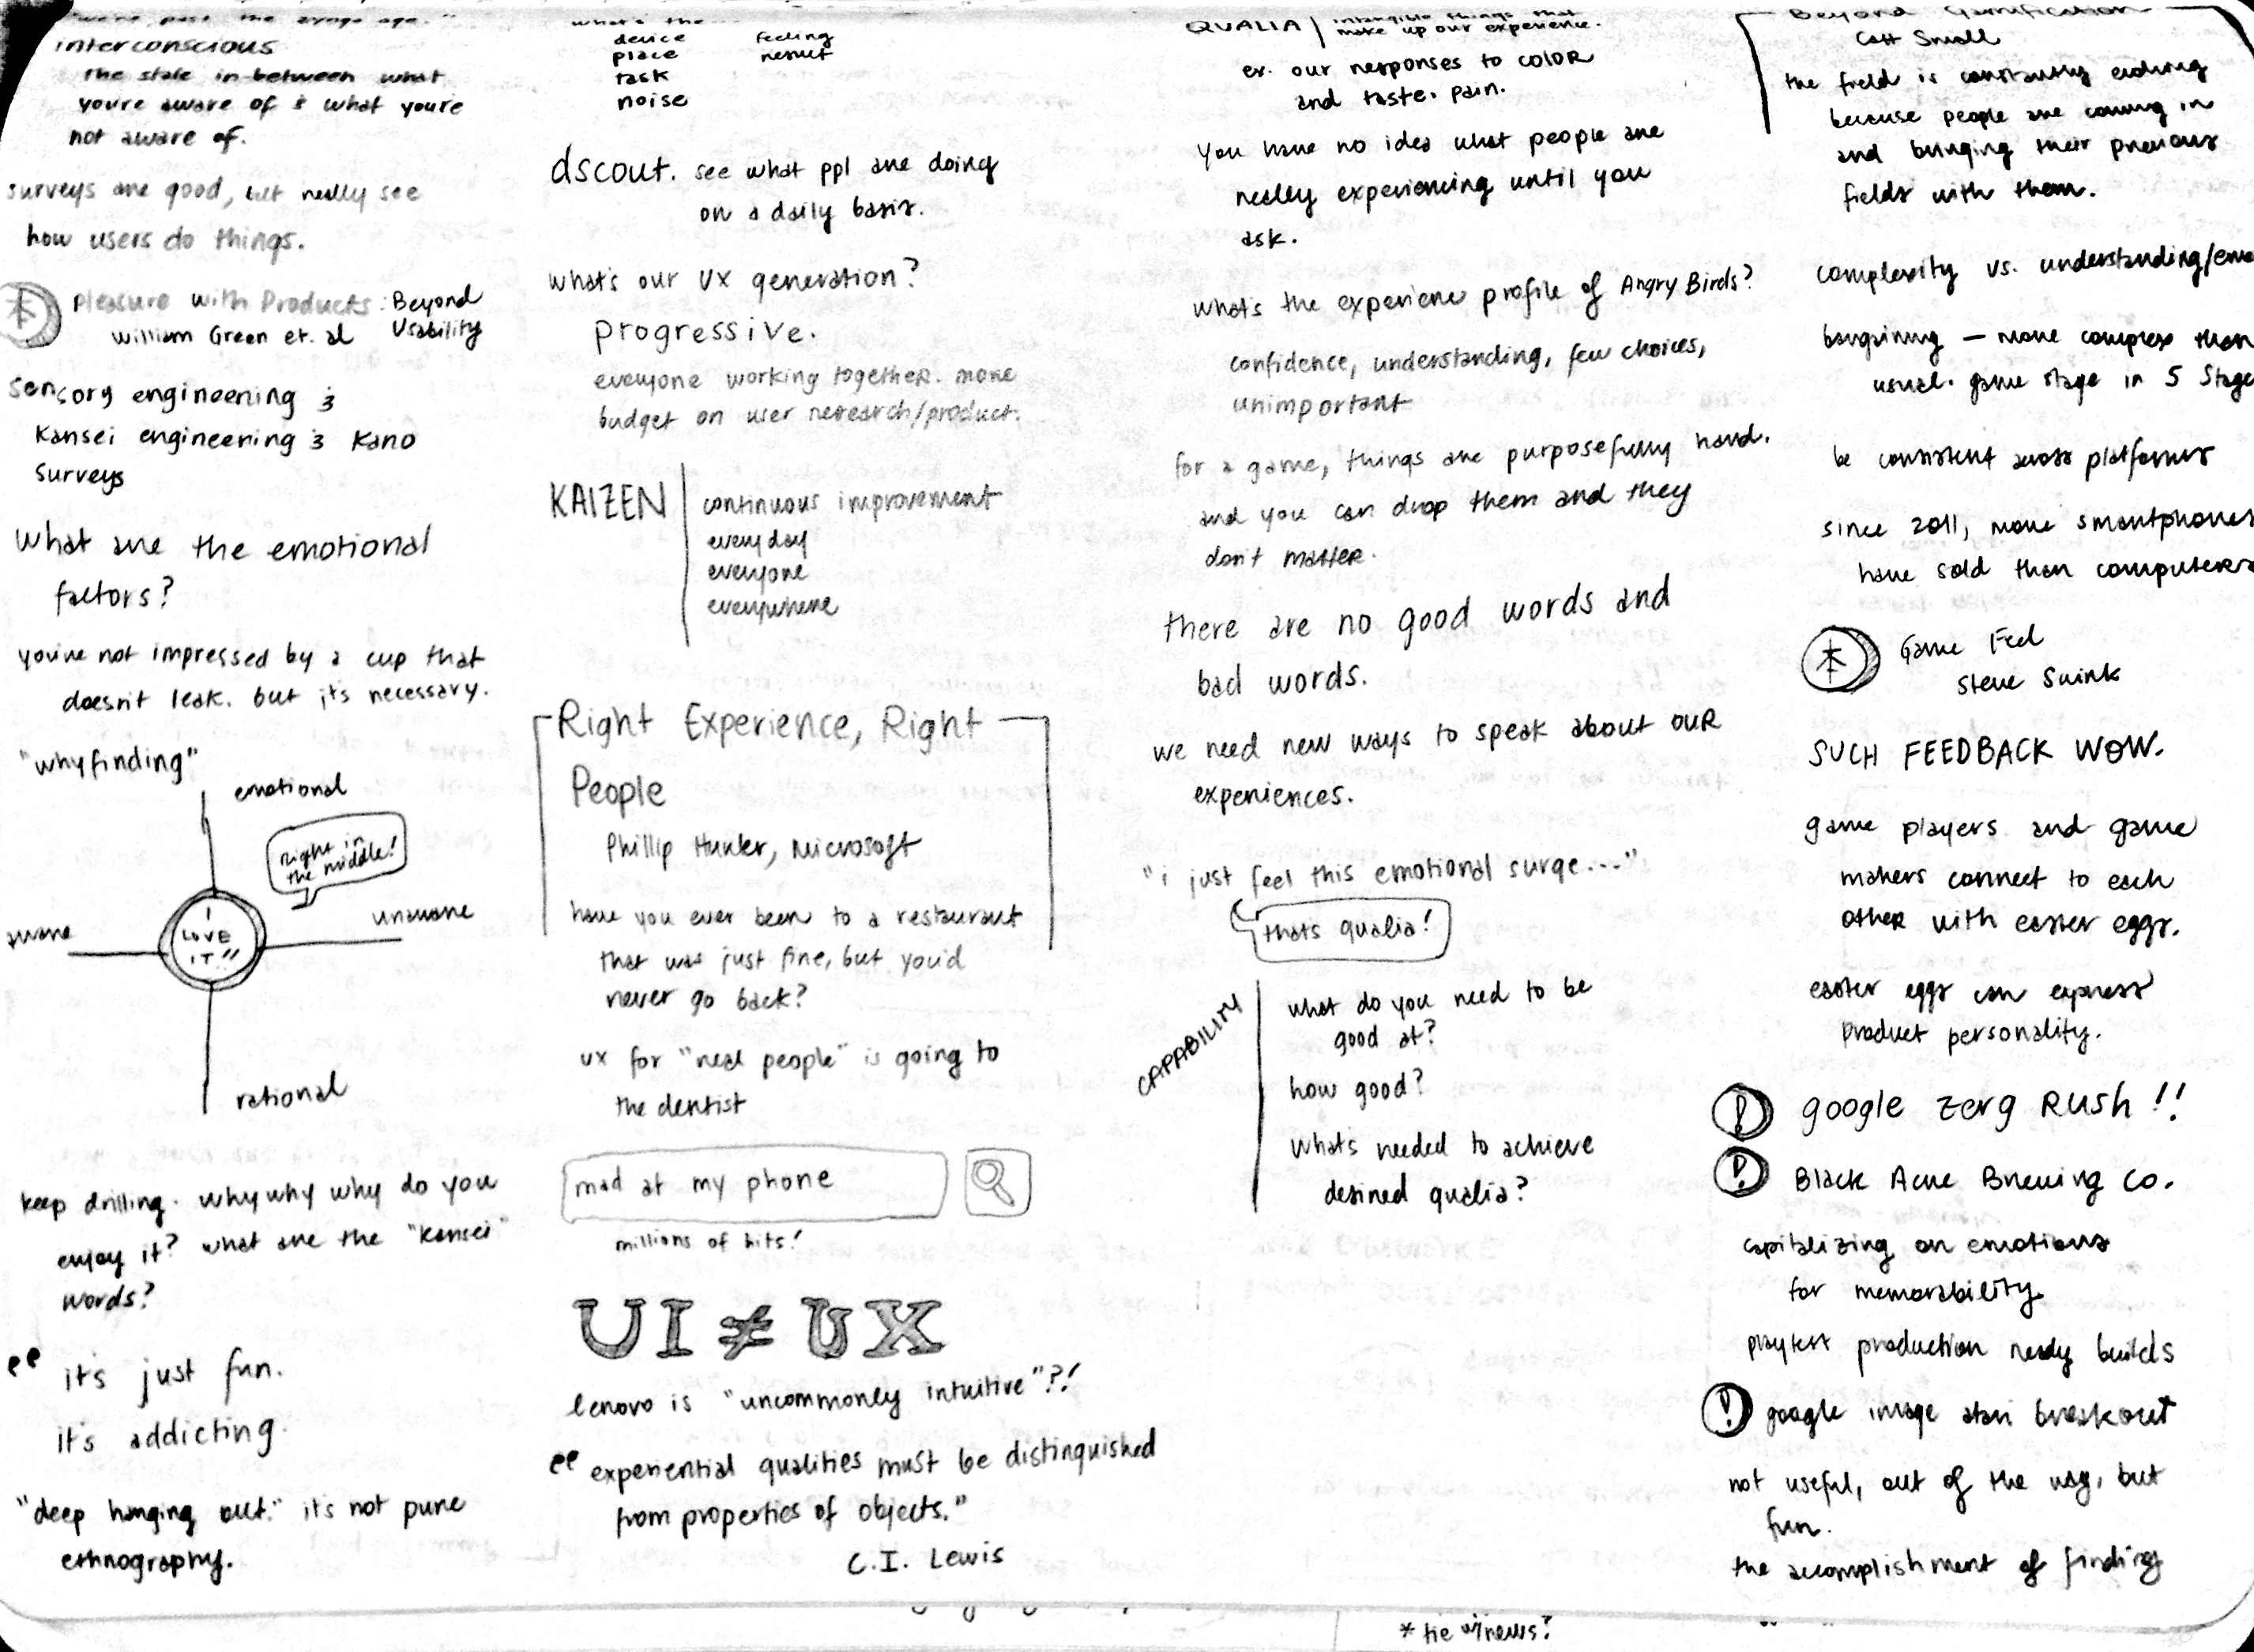 interconscious
the state in-between what
you're aware of & what you're
not aware of.
surveys are good, but really see
how users do things.
Pleasure with Products: Beyond
William Green et. al Usability
sensory engineering &
Kansei engineering & Kano
Surveys
What are the emotional
factors?
you're not impressed by a cup that
doesn't leak. but it's necessary.
"whyfinding"
emotional
right in
the middle!
aware
I
LOVE
IT!!
unaware
rational
keep drilling. why why why do you
enjoy it? what are the "kansei"
words?
it's just fun.
it's addicting.
"deep hanging out." it's not pure
ethnography.
what's the
device feeling
place result
task
noise
dscout. see what ppl are doing
on a daily basis.
what's our UX generation?
progressive.
everyone working together. more
budget on user research/product.
KAIZEN
continuous improvement
everyday
everyone
everywhere
Right Experience, Right
People
Phillip Hunter, Microsoft
have you ever been to a restaurant
that was just fine, but you'd
never go back?
UX for "real people" is going to
the dentist
mad at my phone
millions of hits!
UI ≠ UX
lenovo is "uncommonly intuitive"?!
"experiential qualities must be distinguished
from properties of objects."
C.I. Lewis
QUALIA | intangible things that
make up our experience.
ex. our responses to color
and taste. pain.
You have no idea what people are
really experiencing until you
ask.
what's the experience profile of Angry Birds?
confidence, understanding, few choices,
unimportant
for a game, things are purposefully hard.
and you can drop them and they
don't matter.
there are no good words and
bad words.
we need new ways to speak about our
experiences.
"i just feel this emotional surge...."
thats qualia!
CAPABILITY
what do you need to be
good at?
how good?
whats needed to achieve
desired qualia?
* tie w/news?
Beyond Gamification
Catt Small
the field is constantly evolving
because people are coming in
and bringing their previous
fields with them.
complexity vs. understanding/
bargaining — more complex than
usual. game stage in 5 Stage
be consistent across platforms
since 2011, more smartphones
have sold than computers
Game Feel
Steve Swink
SUCH FEEDBACK WOW.
game players and game
makers connect to each
other with easter eggs.
easter eggs can express
product personality.
google zerg RUSH!!
Black Acre Brewing Co.
capitalizing on emotions
for memorability
playtest production ready builds
google image atari breakout
not useful, out of the way, but
fun.
the accomplishment of finding